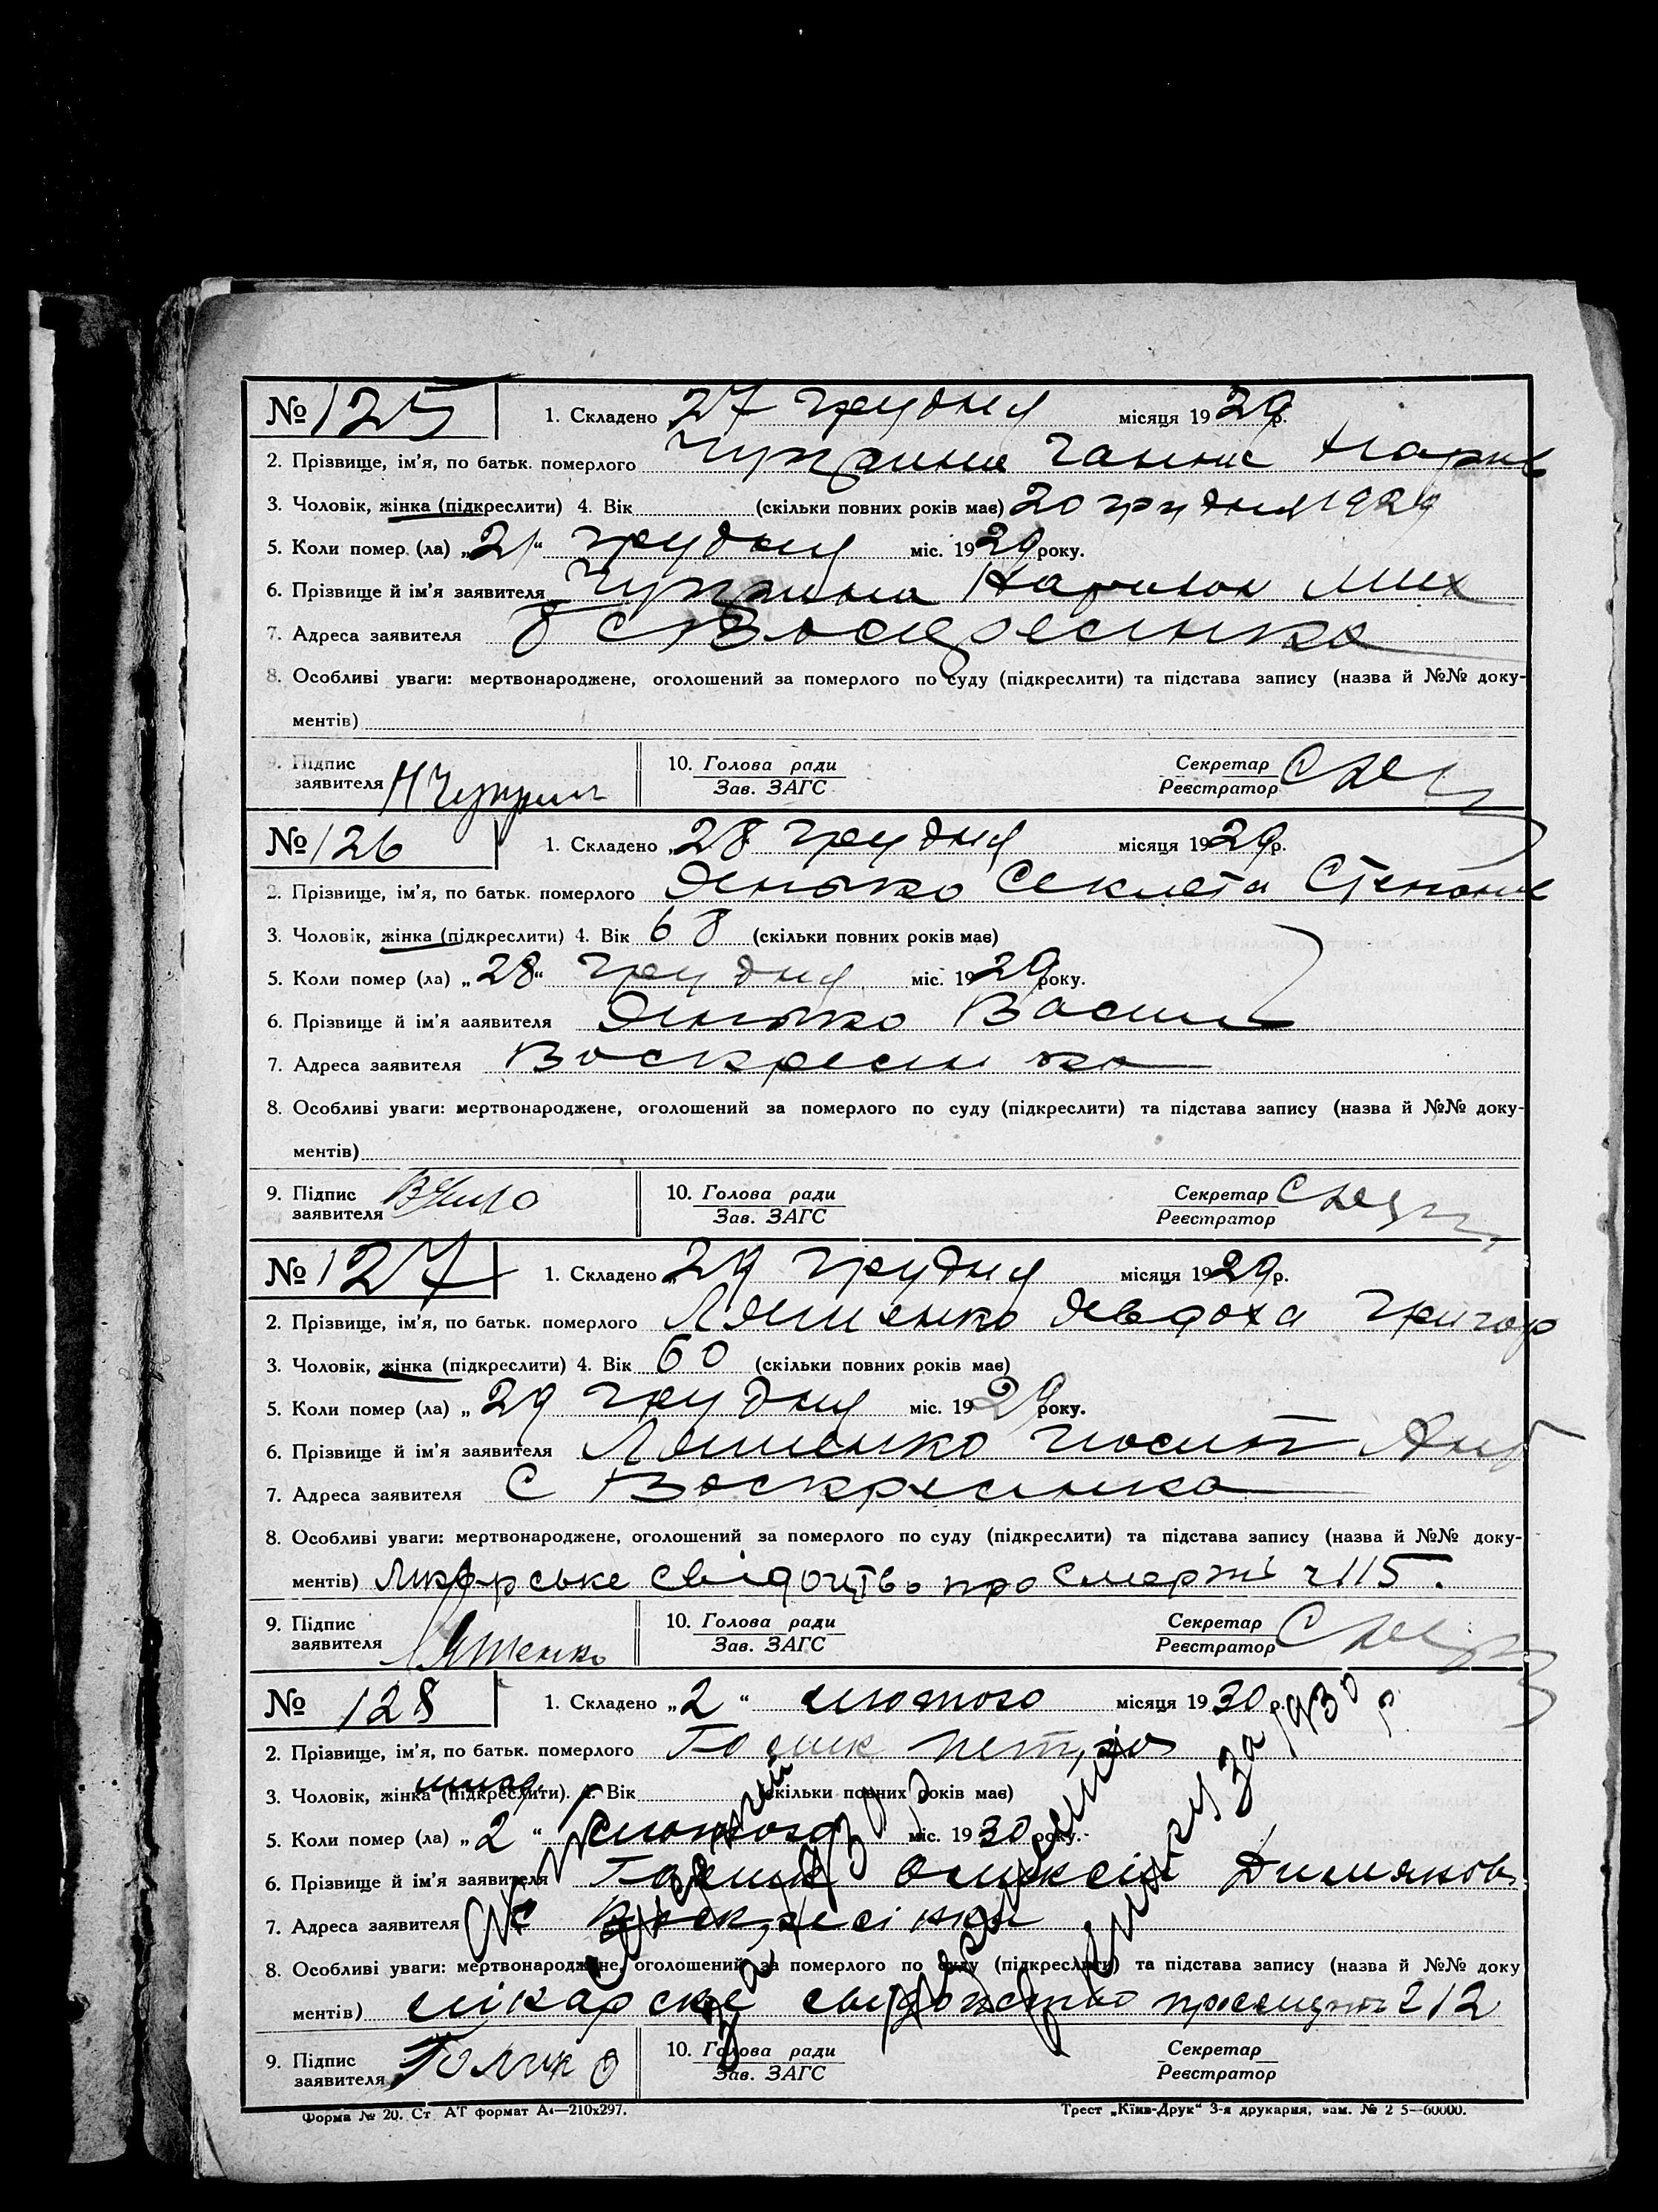 № 125 1. Складено 27 грудня місяця 1929 р.
2. Прізвище, ім'я, по батьк. померлого Чуприна Ганна
3. Чоловік, жінка (підкреслити) 4. Вік (скільки повних років має) 20 грудня 1929
5. Коли помер (ла) „21“ грудня міс. 1929 року.
6. Прізвище й ім'я заявителя Чуприна Мих
7. Адреса заявителя с Воскресенка
8. Особливі уваги: мертвонароджене, оголошений за померлого по суду (підкреслити) та підстава запису (назва й №№ доку-
ментів)
9. Підпис заявителя Н Чуприн 10. Голова ради Зав. ЗАГС Секретар Реєстратор
№ 126 1. Складено „28 грудня місяця 1929 р.
2. Прізвище, ім'я, по батьк. померлого Секлета Степанів
3. Чоловік, жінка (підкреслити) 4. Вік 68 (скільки повних років має)
5. Коли помер (ла) „28“ грудня міс. 1929 року.
6. Прізвище й ім'я заявителя Василь
7. Адреса заявителя Воскресенка
8. Особливі уваги: мертвонароджене, оголошений за померлого по суду (підкреслити) та підстава запису (назва й №№ доку-
ментів)
9. Підпис заявителя 10. Голова ради Зав. ЗАГС Секретар Реєстратор
№ 127 1. Складено „29 грудня місяця 1929 р.
2. Прізвище, ім'я, по батьк. померлого Ляшенко Явдоха Григор
3. Чоловік, жінка (підкреслити) 4. Вік 60 (скільки повних років має)
5. Коли помер (ла) „29 грудня міс. 1929 року.
6. Прізвище й ім'я заявителя Ляшенко Йосип
7. Адреса заявителя С Воскресенка
8. Особливі уваги: мертвонароджене, оголошений за померлого по суду (підкреслити) та підстава запису (назва й №№ доку-
ментів) Лікарське свідоцтво про смерть ч 115.
9. Підпис заявителя Ляшенко 10. Голова ради Зав. ЗАГС Секретар Реєстратор
№ 128 1. Складено „2“ лютого місяця 1930 р.
2. Прізвище, ім'я, по батьк. померлого Петро
3. Чоловік, жінка (підкреслити). 4. Вік (скільки повних років має)
5. Коли помер (ла) „2“ лютого міс. 1930 року.
6. Прізвище й ім'я заявителя Олексій
7. Адреса заявителя с Воскресінка
8. Особливі уваги: мертвонароджене, оголошений за померлого по суду (підкреслити) та підстава запису (назва й №№ доку
ментів) лікарске 212
9. Підпис заявителя 10. Голова ради Зав. ЗАГС Секретар Реєстратор
за 1930 р
Форма № 20. Ст. АТ формат А4—210х297. Трест „Київ-Друк“ 3-я друкарня, зам. № 2 5—60000.